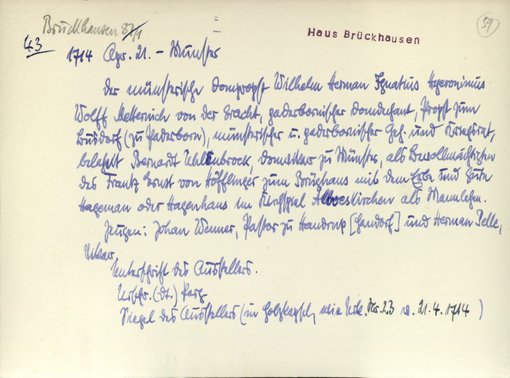 Brückhausen 27/1
43
Haus Brückhausen
59
1714 Apr. 21. – Münster
Der münsterische Dompropst Wilhelm Herman Ignatius Hyeronimus
Wolff Metternich von der Gracht, paderbornischer Domdechant, Propst zum
Busdorf (zu Paderborn), münsterischer u. paderbornischer Geh. und Kriegsrat,
belehnt Bernardt Uhlenbrock, Domvikar zu Münster, als Bevollmächtigten
des Frantz Ernst von Höfflinger zum Brüghaus mit dem Erbe und Gude
Hageman oder Hagenhaus im Kirchspiel Alverskirchen als Mannlehn.
Zeugen: Johan Wenner, Pastor zu Handrup [Handorf] und Herman Pelle,
Vikar.
Unterschrift des Ausstellers.
Urschr. (dt.) Perg.
Siegel des Ausstellers (in Holzkapsel, wie Urk. Nr. 23 v. 21.4.1714)